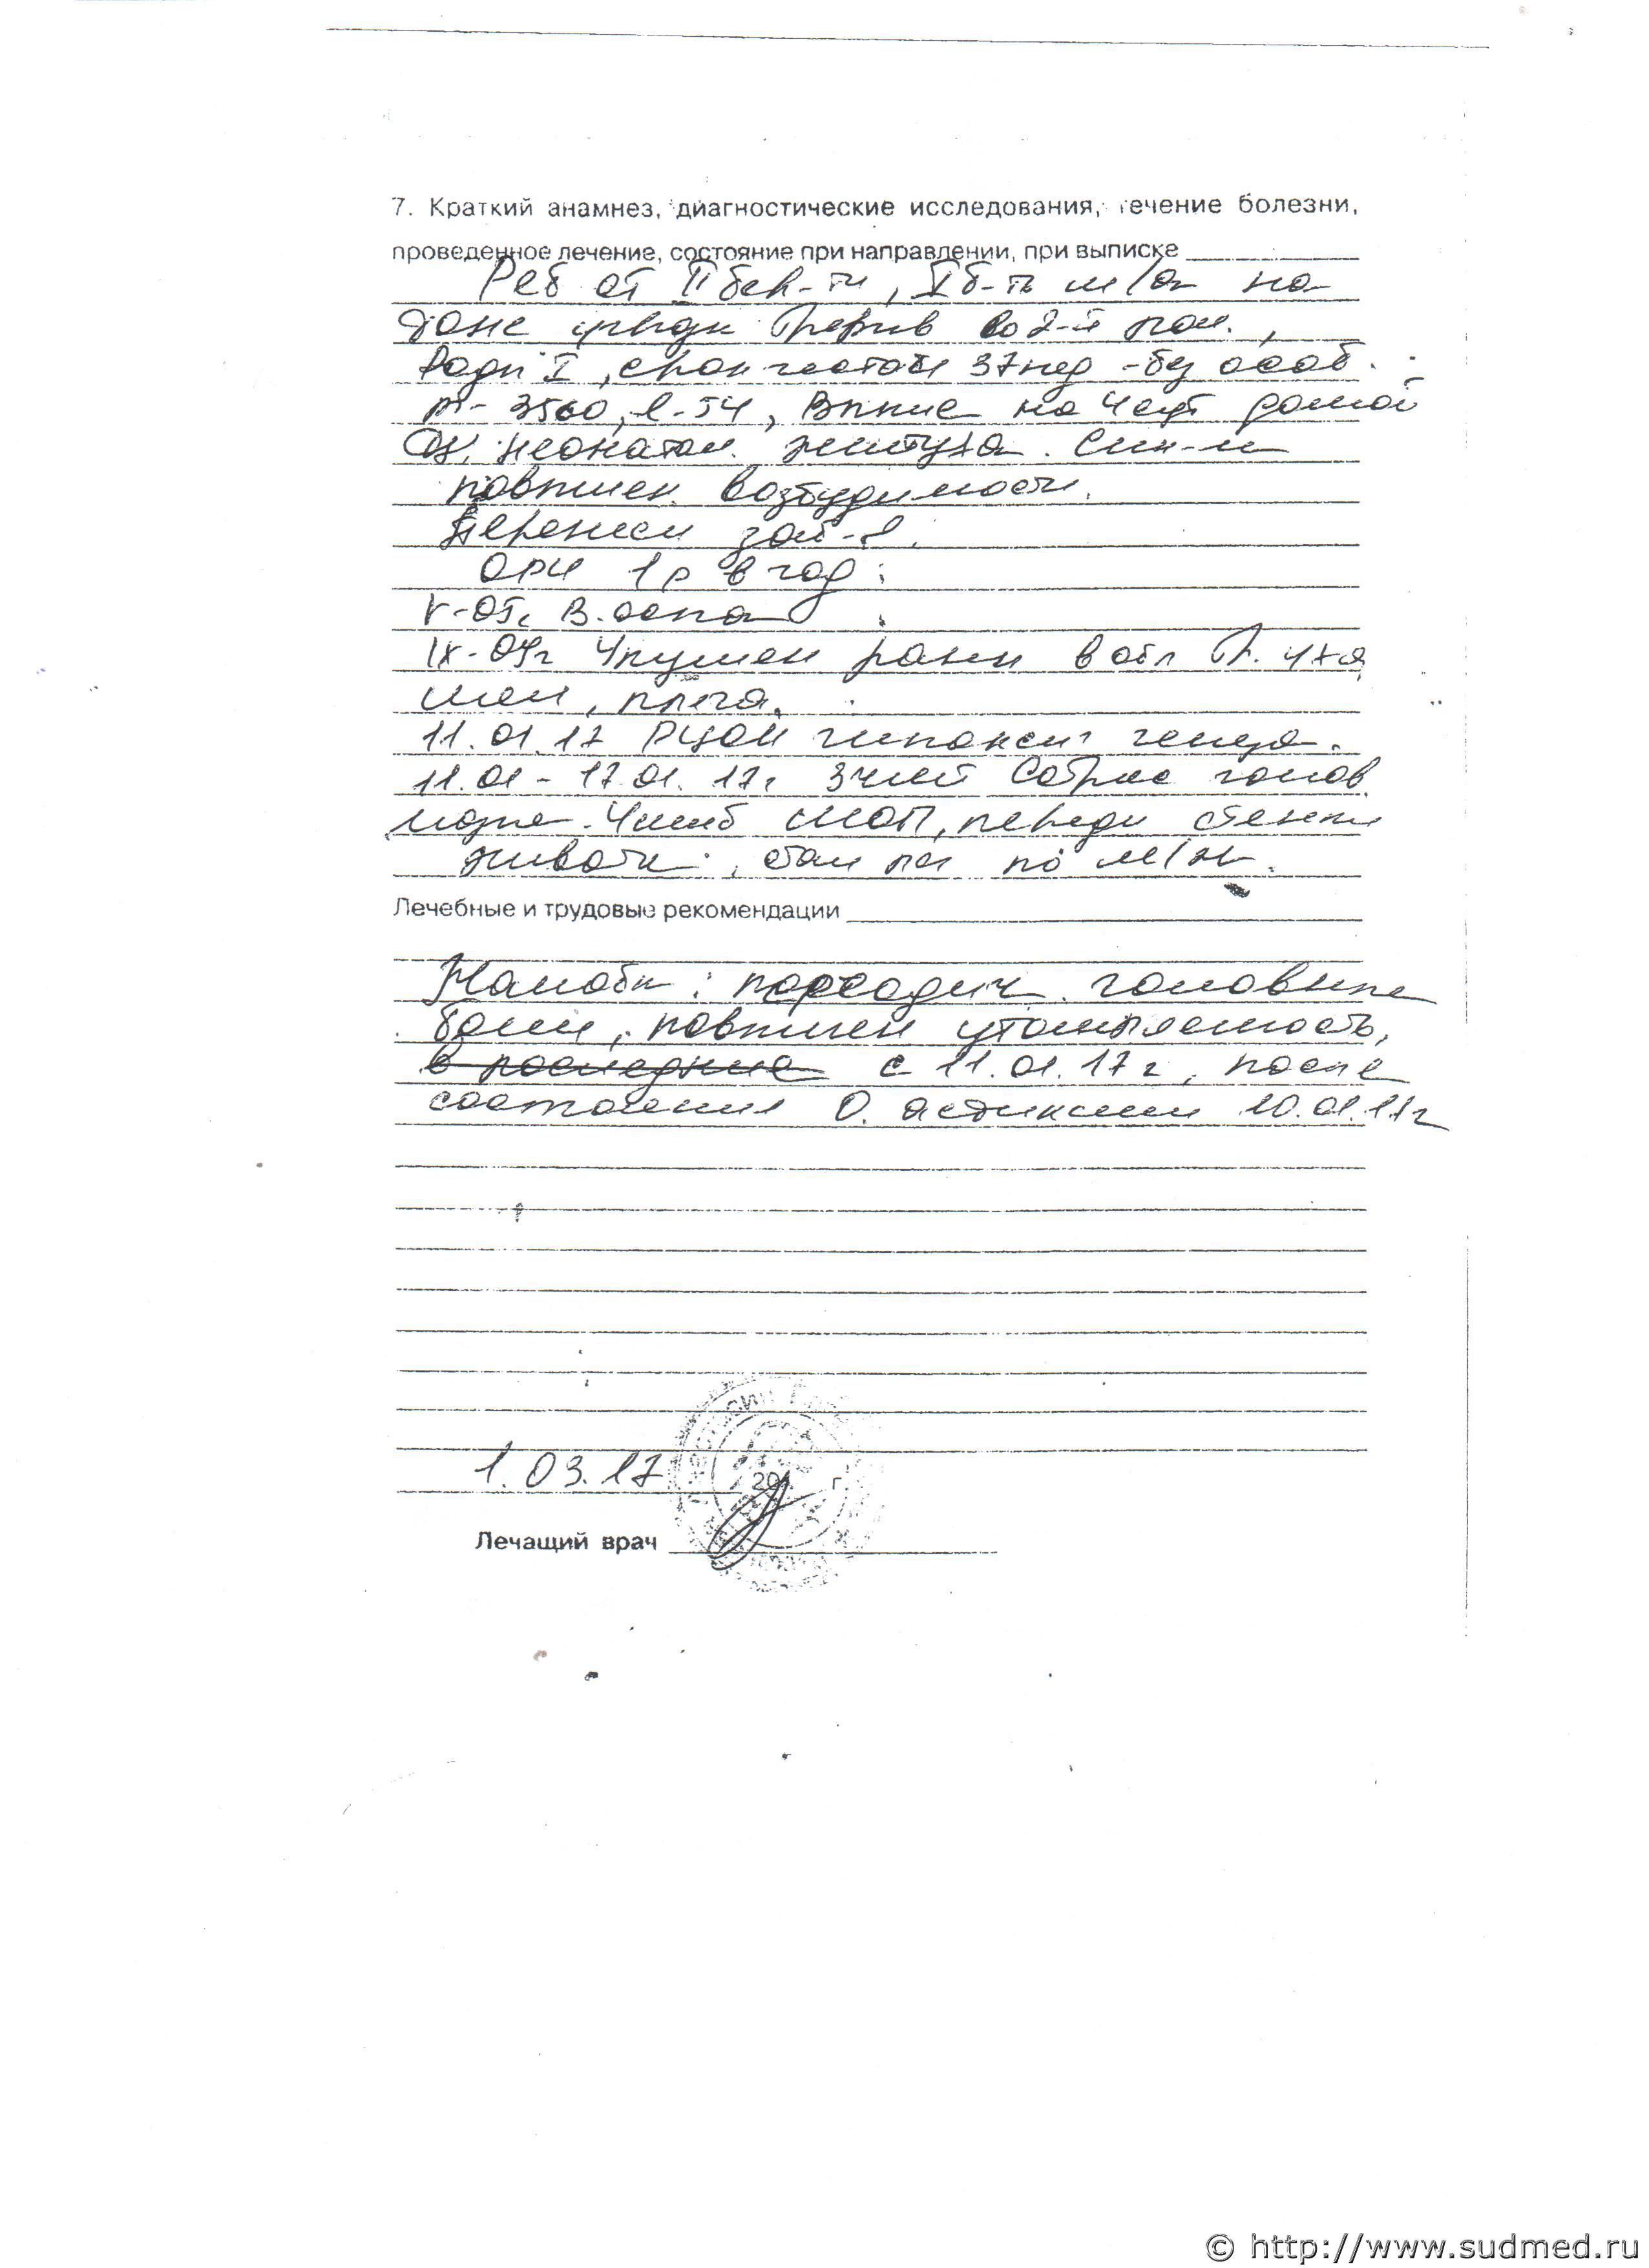 7. Краткий анамнез, диагностические исследования, течение болезни,
проведенное лечение, состояние при направлении, при выписке
Реб от II бер-ти, I б-ть м/а на
фоне угрозы прерыв во 2-й пол.,
Роды I, 37 нед - без особ.
m- 3560, l-54, Выпис на 4 сут домой
Ds, неонатал. желтуха. Син-м
повышен. возбудимости.
Перенесен заб-я.
ОРИ 1 р в год.
V-05г В. оспа
IX-09г Укушен раны в обл П. уха
шеи, плеча.
11.01.17 гипоксич генеза.
11.01 - 17.01.17г ЗЧМТ Сотряс голов.
мозга. Ушиб ШОП, передн стенки
живота, стац по м/ж.
Лечебные и трудовые рекомендации
Жалобы: периодич. головные
боли, повышен утомляемость,
в последние с 11.01.17 г, после
состояния О. асфиксии 10.01.17г
1.03.17 201 г
Лечащий врач
© http://www.sudmed.ru